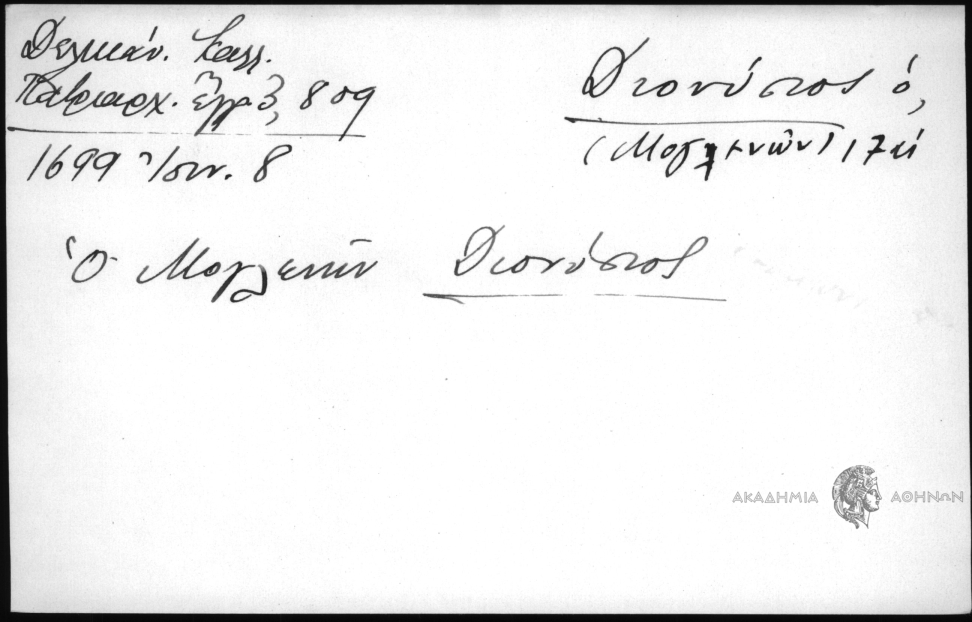 Δελικάν. Καλλ.
Πατριαρχ. ἔγγρ 3, 809
1699 Ἰουν. 8
Διονύσιος ὁ,
(Μογλενῶν) 17
Ὁ Μογλενῶν Διονύσιος
ΑΚΑΔΗΜΙΑ ΑΘΗΝΩΝ